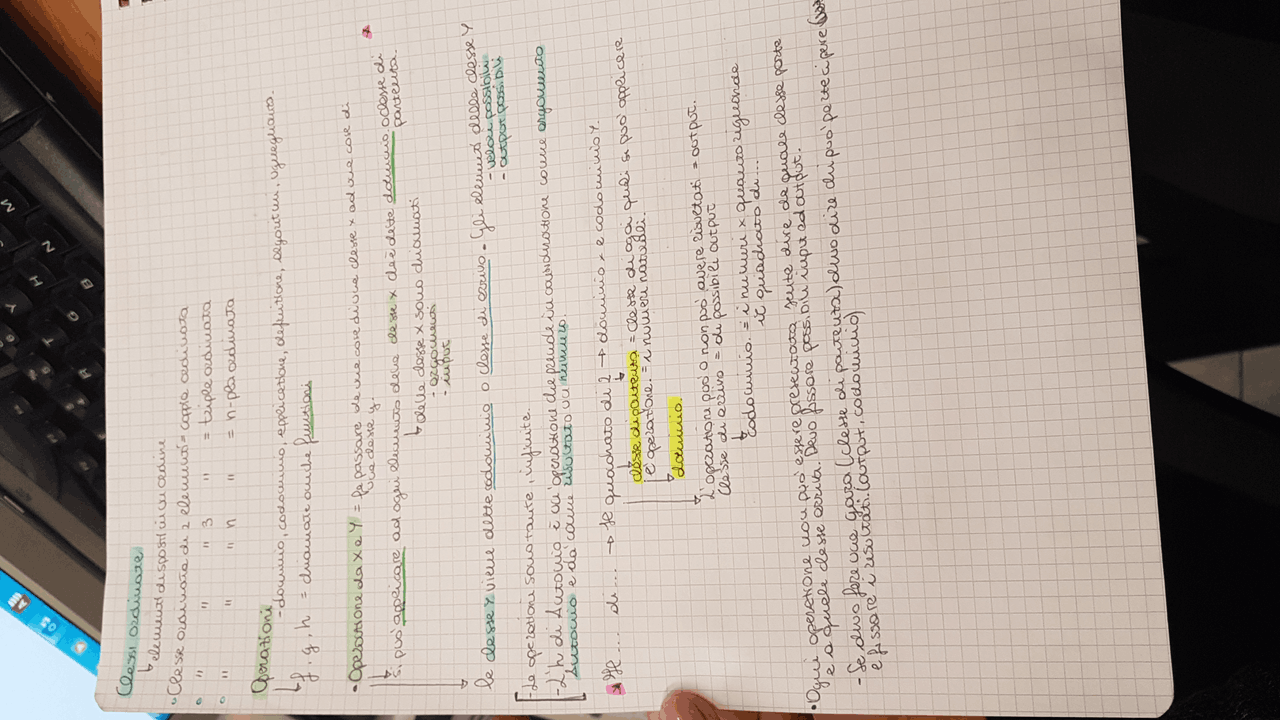 Classi ordinate
↳ elementi disposti in ordine
• Classe ordinata di 2 elementi = coppia ordinata
• " " " 3 " = tripla ordinata
• " " " n " = n-pla ordinata
Operazioni
- dominio, codominio, applicazione, definizione, segnatura, uguaglianza.
↳ f, g, h = chiamate anche funzioni
• Operazione da X a Y = fa passare da una cosa di una classe X ad una cosa di
una classe Y.
Si può applicare ad ogni elemento della classe X che è detta dominio o classe di
partenza.
↳ della classe X sono chiamati
- argomenti
- input
La classe Y viene detta codominio o classe di arrivo. Gli elementi della classe Y
- valori possibili
- output possibili
- Le operazioni sono tante, infinite.
- L'h di Antonio è un'operazione che prende in considerazione come argomento
Antonio e dà come risultato un numero.
* Il .... di .... → Il quadrato di 2 → dominio X e codominio Y.
classe di partenza = classe di oggetti ai quali si può applicare
l'operazione. = i numeri naturali.
↳ dominio.
L'operazione può o non può avere risultati = output.
Classe di arrivo = di possibili output
↳ codominio = i numeri x quanto riguarda
il quadrato di ...
• Ogni operazione non può essere presentata senza dire da quale classe parte
e a quale classe arriva. Devo fissare possibili input ed output.
- Se devo fare una gara (classe di partenza) devo dire chi può partecipare
e fissare i risultati. (output, codominio)